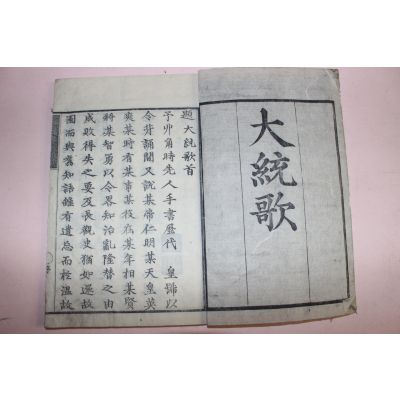 大統歌
題大統歌首
予丱角時先人手書歷代 皇號以
令背誦閒又說某帝仁明某天皇英
爽某時有某事某役在某年相某賢
將某智勇以令略知治亂隆替之由
成敗得失之要及長觀史猶如逐故
國而與舊知語雖有遺忘而輕溫故